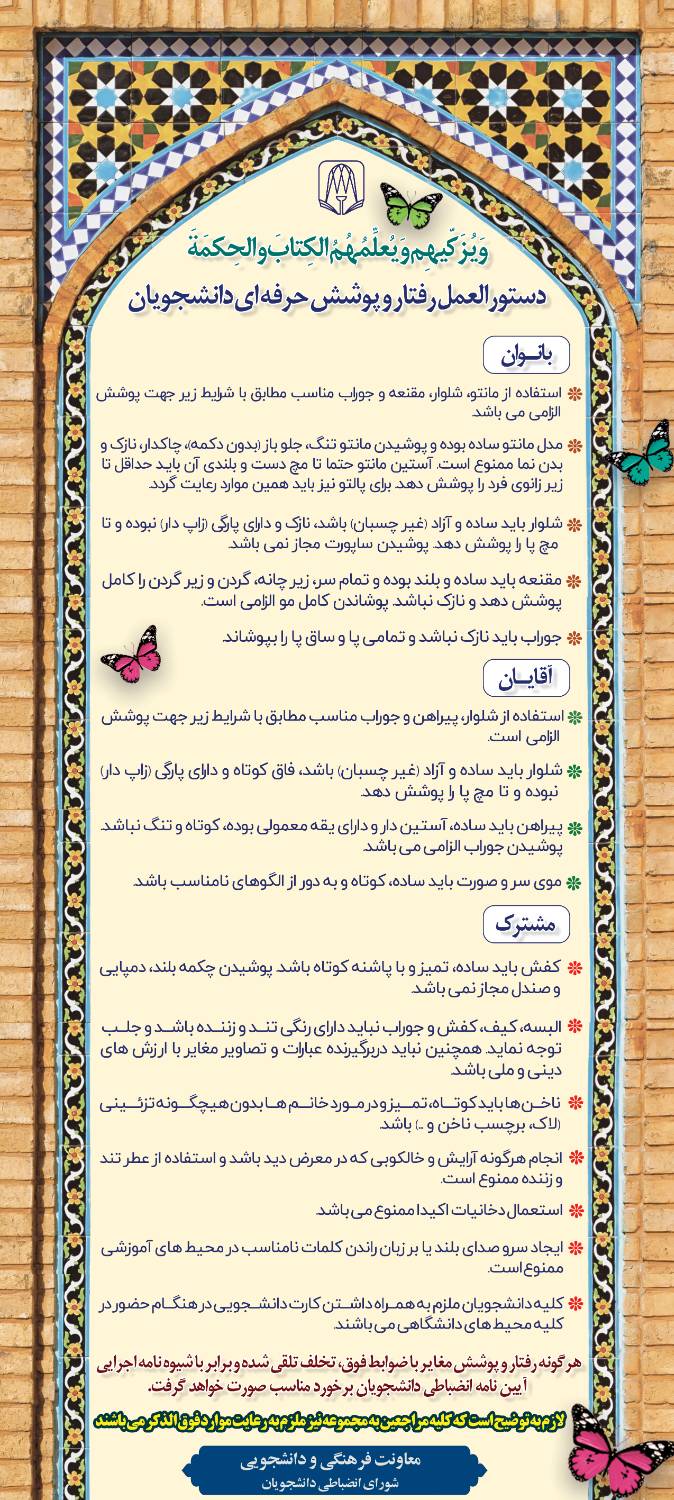 وَيُزَكِّيهِم وَيُعَلِّمُهُمُ الكِتابَ وَالحِكمَةَ
دستورالعمل رفتار و پوشش حرفه ای دانشجویان
بانــوان
استفاده از مانتو، شلوار، مقنعه و جوراب مناسب مطابق با شرایط زیر جهت پوشش
الزامی می باشد.
مدل مانتو ساده بوده و پوشیدن مانتو تنگ، جلو باز (بدون دکمه)، چاکدار، نازک و
بدن نما ممنوع است. آستین مانتو حتما تا مچ دست و بلندی آن باید حداقل تا
زیر زانوی فرد را پوشش دهد. برای پالتو نیز باید همین موارد رعایت گردد.
شلوار باید ساده و آزاد (غیر چسبان) باشد، نازک و دارای پارگی (زاپ دار) نبوده و تا
مچ پا را پوشش دهد. پوشیدن ساپورت مجاز نمی باشد.
مقنعه باید ساده و بلند بوده و تمام سر، زیر چانه، گردن و زیر گردن را کامل
پوشش دهد و نازک نباشد. پوشاندن کامل مو الزامی است.
جوراب باید نازک نباشد و تمامی پا و ساق پا را بپوشاند.
آقایــان
استفاده از شلوار، پیراهن و جوراب مناسب مطابق با شرایط زیر جهت پوشش
الزامی است.
شلوار باید ساده و آزاد (غیر چسبان) باشد، فاق کوتاه و دارای پارگی (زاپ دار)
نبوده و تا مچ پا را پوشش دهد.
پیراهن باید ساده، آستین دار و دارای یقه معمولی بوده، کوتاه و تنگ نباشد.
پوشیدن جوراب الزامی می باشد.
موی سر و صورت باید ساده، کوتاه و به دور از الگوهای نامناسب باشد.
مشترک
کفش باید ساده، تمیز و با پاشنه کوتاه باشد. پوشیدن چکمه بلند، دمپایی
و صندل مجاز نمی باشد.
البسه، کیف، کفش و جوراب نباید دارای رنگی تند و زننده باشد و جلب
توجه نماید. همچنین نباید دربرگیرنده عبارات و تصاویر مغایر با ارزش های
دینی و ملی باشد.
ناخن ها باید کوتاه، تمیز و در مورد خانم ها بدون هیچگونه تزئینی
(لاک، برچسب ناخن و ..) باشد.
انجام هرگونه آرایش و خالکوبی که در معرض دید باشد و استفاده از عطر تند
و زننده ممنوع است.
استعمال دخانیات اکیدا ممنوع می باشد.
ایجاد سرو صدای بلند یا بر زبان راندن کلمات نامناسب در محیط های آموزشی
ممنوع است.
کلیه دانشجویان ملزم به همراه داشتن کارت دانشجویی در هنگام حضور در
کلیه محیط های دانشگاهی می باشند.
هر گونه رفتار و پوشش مغایر با ضوابط فوق، تخلف تلقی شده و برابر با شیوه نامه اجرایی
آیین نامه انضباطی دانشجویان برخورد مناسب صورت خواهد گرفت.
لازم به توضیح است که کلیه مراجعین به مجموعه نیز ملزم به رعایت موارد فوق الذکر می باشند
معاونت فرهنگی و دانشجویی
شورای انضباطی دانشجویان